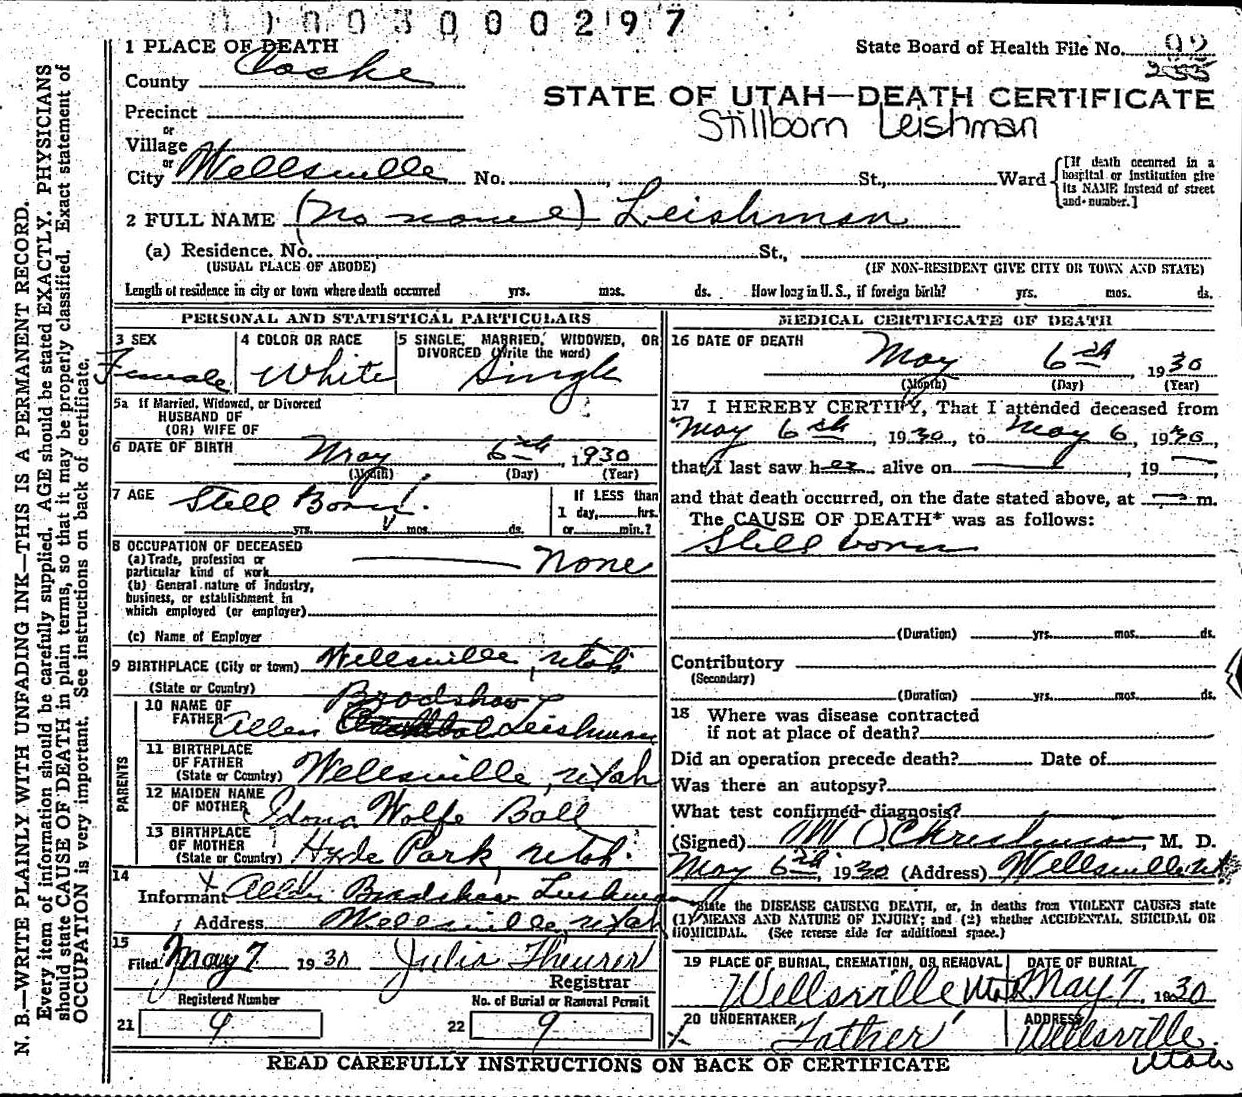 003000297
1 PLACE OF DEATH
State Board of Health File No. 92
County Cache
STATE OF UTAH—DEATH CERTIFICATE
Stillborn Leishman
Precinct
or
Village
or
City Wellsville No. St., Ward
[If death occurred in a
hospital or institution give
its NAME instead of street
and number.]
2 FULL NAME (no name) Leishman
(a) Residence. No. St.,
(USUAL PLACE OF ABODE) (IF NON-RESIDENT GIVE CITY OR TOWN AND STATE)
Length of residence in city or town where death occurred yrs. mos. ds. How long in U. S., if foreign birth? yrs. mos. ds.
PERSONAL AND STATISTICAL PARTICULARS
3 SEX 4 COLOR OR RACE 5 SINGLE, MARRIED, WIDOWED, OR
DIVORCED (Write the word)
Female White Single
5a If Married, Widowed, or Divorced
HUSBAND OF
(OR) WIFE OF
6 DATE OF BIRTH May 6th, 1930
(Month) (Day) (Year)
7 AGE Still Born
If LESS than
1 day, hrs.
yrs. mos. ds. or min.?
8 OCCUPATION OF DECEASED
(a) Trade, profession or
particular kind of work None
(b) General nature of Industry,
business, or establishment in
which employed (or employer)
(c) Name of Employer
9 BIRTHPLACE (City or town) Wellsville, Utah
(State or Country)
PARENTS
10 NAME OF
FATHER Allen Bradshaw Leishman
11 BIRTHPLACE
OF FATHER
(State or Country) Wellsville, Utah
12 MAIDEN NAME
OF MOTHER Idona Wolfe Ball
13 BIRTHPLACE
OF MOTHER
(State or Country) Hyde Park Utah.
14
Informant Allen Bradshaw Leishman
Address Wellsville, Utah
15
Filed May 7 1930 Julia Theurer
Registrar
Registered Number No. of Burial or Removal Permit
21 9 22 9
MEDICAL CERTIFICATE OF DEATH
16 DATE OF DEATH
May 6th, 1930
(Month) (Day) (Year)
17 I HEREBY CERTIFY, That I attended deceased from
May 6th, 1930, to May 6, 1930,
that I last saw her alive on , 19
and that death occurred, on the date stated above, at m.
The CAUSE OF DEATH* was as follows:
Still born
(Duration) yrs. mos. ds.
Contributory
(Secondary)
(Duration) yrs. mos. ds.
18 Where was disease contracted
if not at place of death?
Did an operation precede death? Date of
Was there an autopsy?
What test confirmed diagnosis?
(Signed) M O Christensen, M. D.
May 6th, 1930 (Address) Wellsville Ut
*State the DISEASE CAUSING DEATH, or, in deaths from VIOLENT CAUSES state
(1) MEANS AND NATURE OF INJURY; and (2) whether ACCIDENTAL, SUICIDAL OR
HOMICIDAL. (See reverse side for additional space.)
19 PLACE OF BURIAL, CREMATION, OR REMOVAL DATE OF BURIAL
Wellsville Utah May 7 1930
20 UNDERTAKER ADDRESS
Father Wellsville.
Utah
READ CAREFULLY INSTRUCTIONS ON BACK OF CERTIFICATE
N. B.—WRITE PLAINLY WITH UNFADING INK—THIS IS A PERMANENT RECORD.
Every item of information should be carefully supplied. AGE should be stated EXACTLY. PHYSICIANS
should state CAUSE OF DEATH in plain terms, so that it may be properly classified. Exact statement of
OCCUPATION is very important. See instructions on back of certificate.